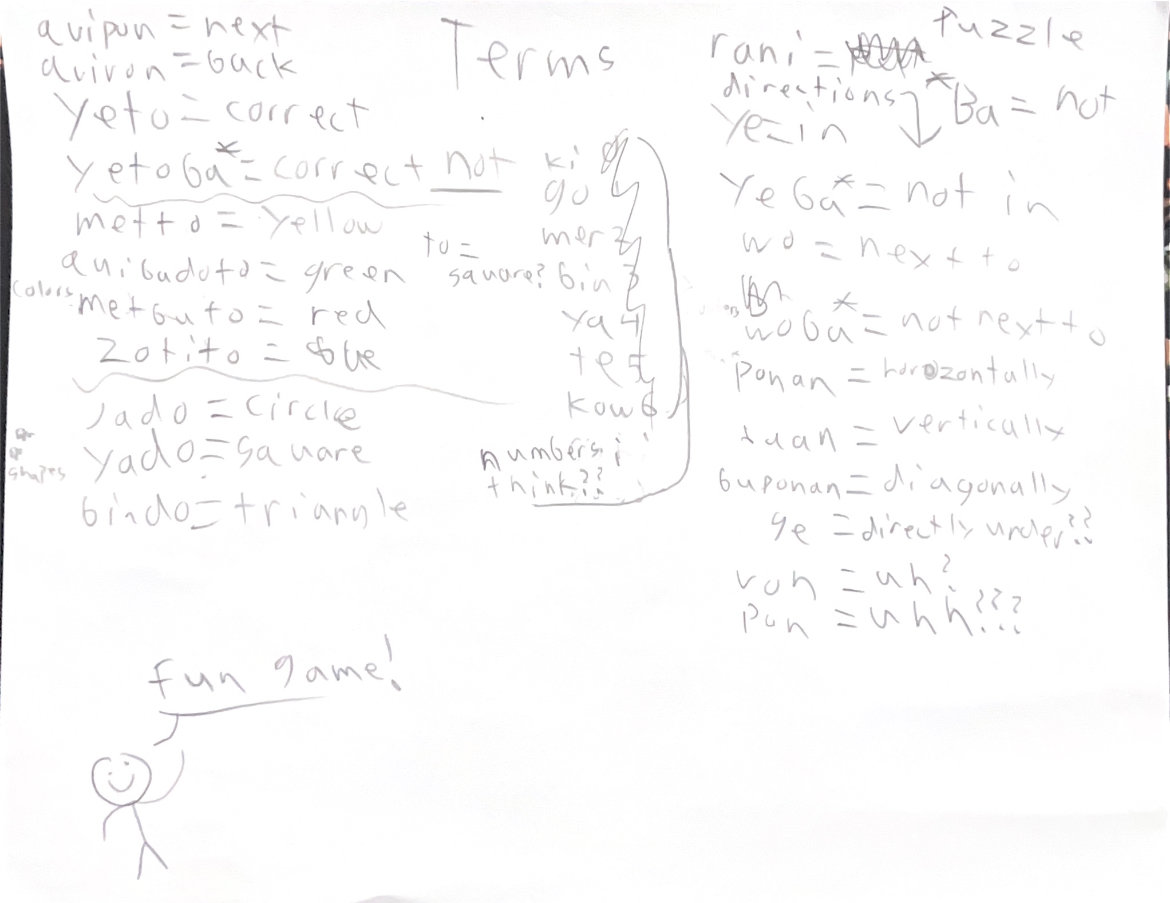 Terms
quipon = next
quiron = back
yeto = correct
yetoba* = correct not
metto = yellow
quibadoto = green
colors
metbuto = red
zotito = blue
Jado = circle
yado = square
shapes
bindo = triangle
to =
square?
ki 0
go 1
mer 2
bin 3
ya 4
te 5
kow 6
numbers i
think??
rani = puzzle
directions
*Ba = not
ye = in
yeba* = not in
wo = next to
woba* = not next to
ponan = horozontally
tuan = vertically
buponan = diagonally
ge = directly under??
von = uh?
pon = uhh???
fun game!